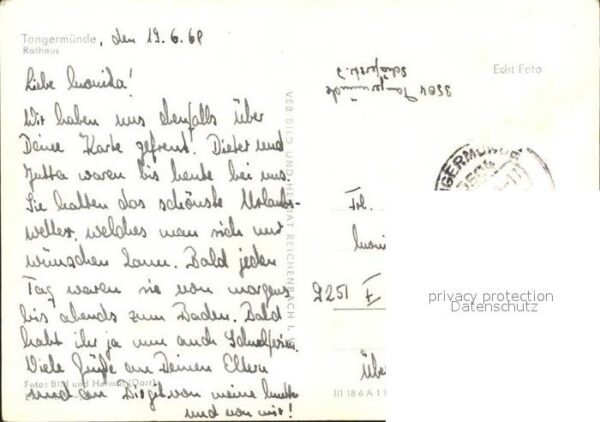 Tangermünde, den 19.6.68
Rathaus
Liebe Monika!
Wir haben uns ebenfalls über
Deine Karte gefreut. Dieter und
Jutta waren bis heute bei uns.
Sie hatten das schönste Urlaubs-
wetter, welches man sich nur
wünschen kann. Bald jeden
Tag waren sie von morgens
bis abends zum Baden. Bald
habt ihr ja nun auch Schulferien.
Viele Grüße an Deinen Eltern
und an Birgit von meine Mutter
und von mir!
Foto: Bild und Heimat (Darr)
VEB BILD UND HEIMAT REICHENBACH I.
Echt Foto
3504 Tangermünde
Schäferstr. 7
TANGERMÜNDE
3504
Frl.
Moni
9251
III 18 6 A 1
privacy protection
Datenschutz